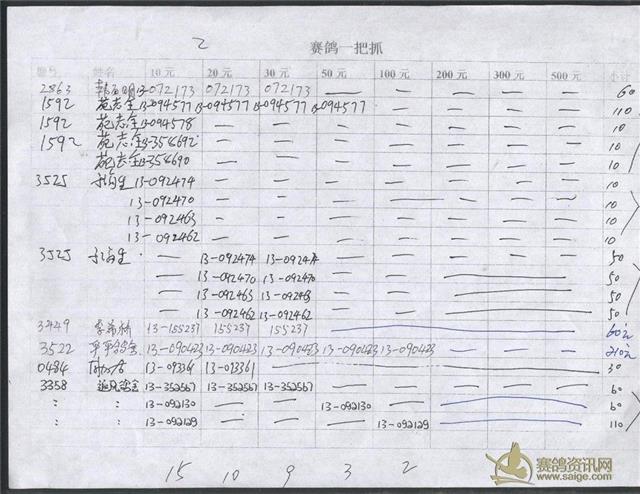 2
赛鸽一把抓
编号 姓名 10元 20元 30元 50元 100元 200元 300元 500元 小计
2863 072173 072173 072173 — — — — — 60
1592 施志全 13-094577 13-094577 13-094577 13-094577 — — — — 110
1592 施志全 13-094578 — — — — — — — 10
1592 施志全 13-358692 — — — — — — — 10
施志全 13-358690 — — — — — — — 10
3525 13-092474 — — — — — — — 10
13-092470 — — — — — — 10
13-092463 — — — — — — — 10
13-092462 — — — — — — — 10
3525 — 13-092474 13-09247 — — — — — 50
— 13-092470 13-092470 — — — 50
— 13-092463 13-09246 — — — 50
— 13-092462 13-092462 — — — 50
3449 13-155237 155237 155237 — 60元
3522 13-090423 13-090423 13-090423 13-090423 13-090423 — — — 210元
0484 13-073361 13-073361 — 30
3358 13-352567 13-352567 13-352567 — — — — — 60
: : 13-092130 — — 13-092130 — — 60
: : 13-092129 — — — 13-092129 — 110
15 10 9 3 2
赛鸽资讯网
www.saige.com